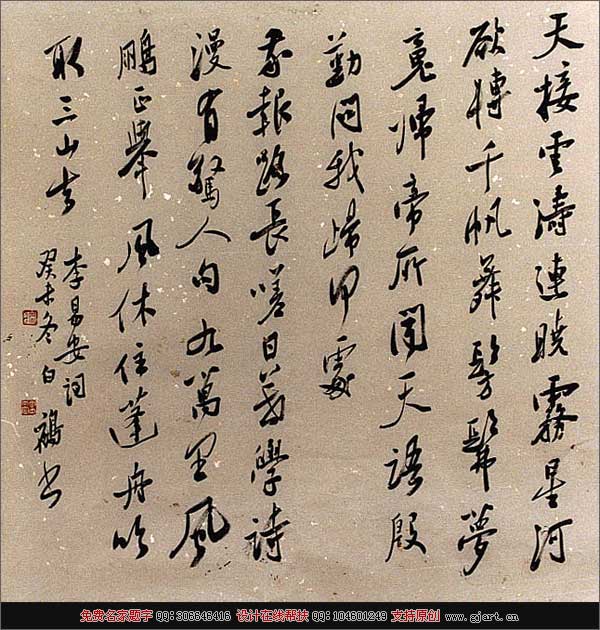 天接雲濤連曉霧星河
欲轉千帆舞髣髴夢
魂歸帝所聞天語殷
勤問我歸何處
我報路長嗟日暮學詩
漫有驚人句九萬里風
鵬正舉風休住蓬舟吹
取三山去
李易安詞
癸未冬白書
免费名家题字 QQ:306646416 设计在线帮扶 QQ:104601249 支持原创 www.gjart.cn